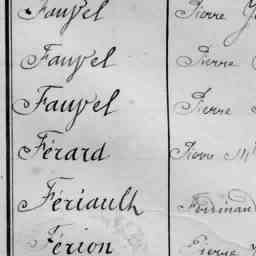 Fauvel Pierre
Fauvel Pierre
Fauvel Pierre
Férard Pierre M
Fériault Ferdinand
Férion Pierre